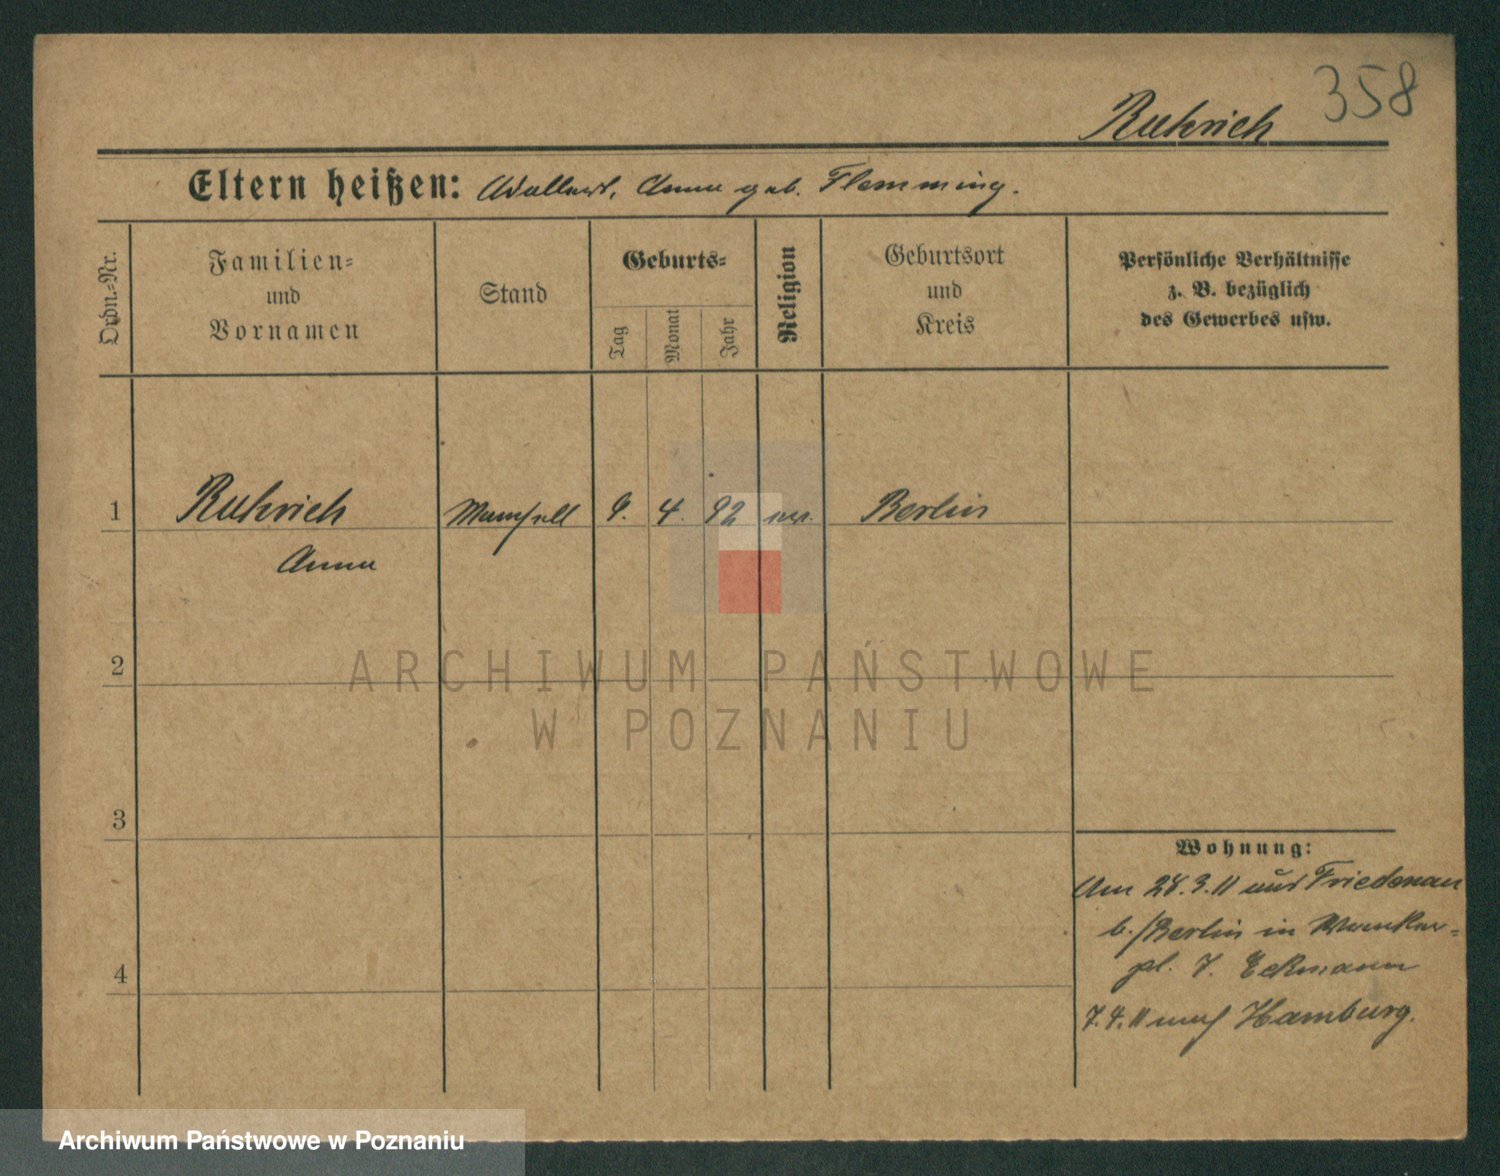 358
Ruhrich
Eltern heißen: Adalbert, Anna geb. Flemming.
Ordn.-Nr.
Familien-
und
Vornamen
Stand
Geburts-
Tag
Monat
Jahr
Religion
Geburtsort
und
Kreis
Persönliche Verhältnisse
z. B. bezüglich
des Gewerbes usw.
1 Ruhrich Mamsell 9. 4. 92 ev. Berlin
Anna
2
ARCHIWUM PAŃSTWOWE
W POZNANIU
3
Wohnung:
Am 28.3.11 aus Friedenau
b./Berlin in
4
pl. 7. Eckmann
7.4.11 nach Hamburg.
Archiwum Państwowe w Poznaniu